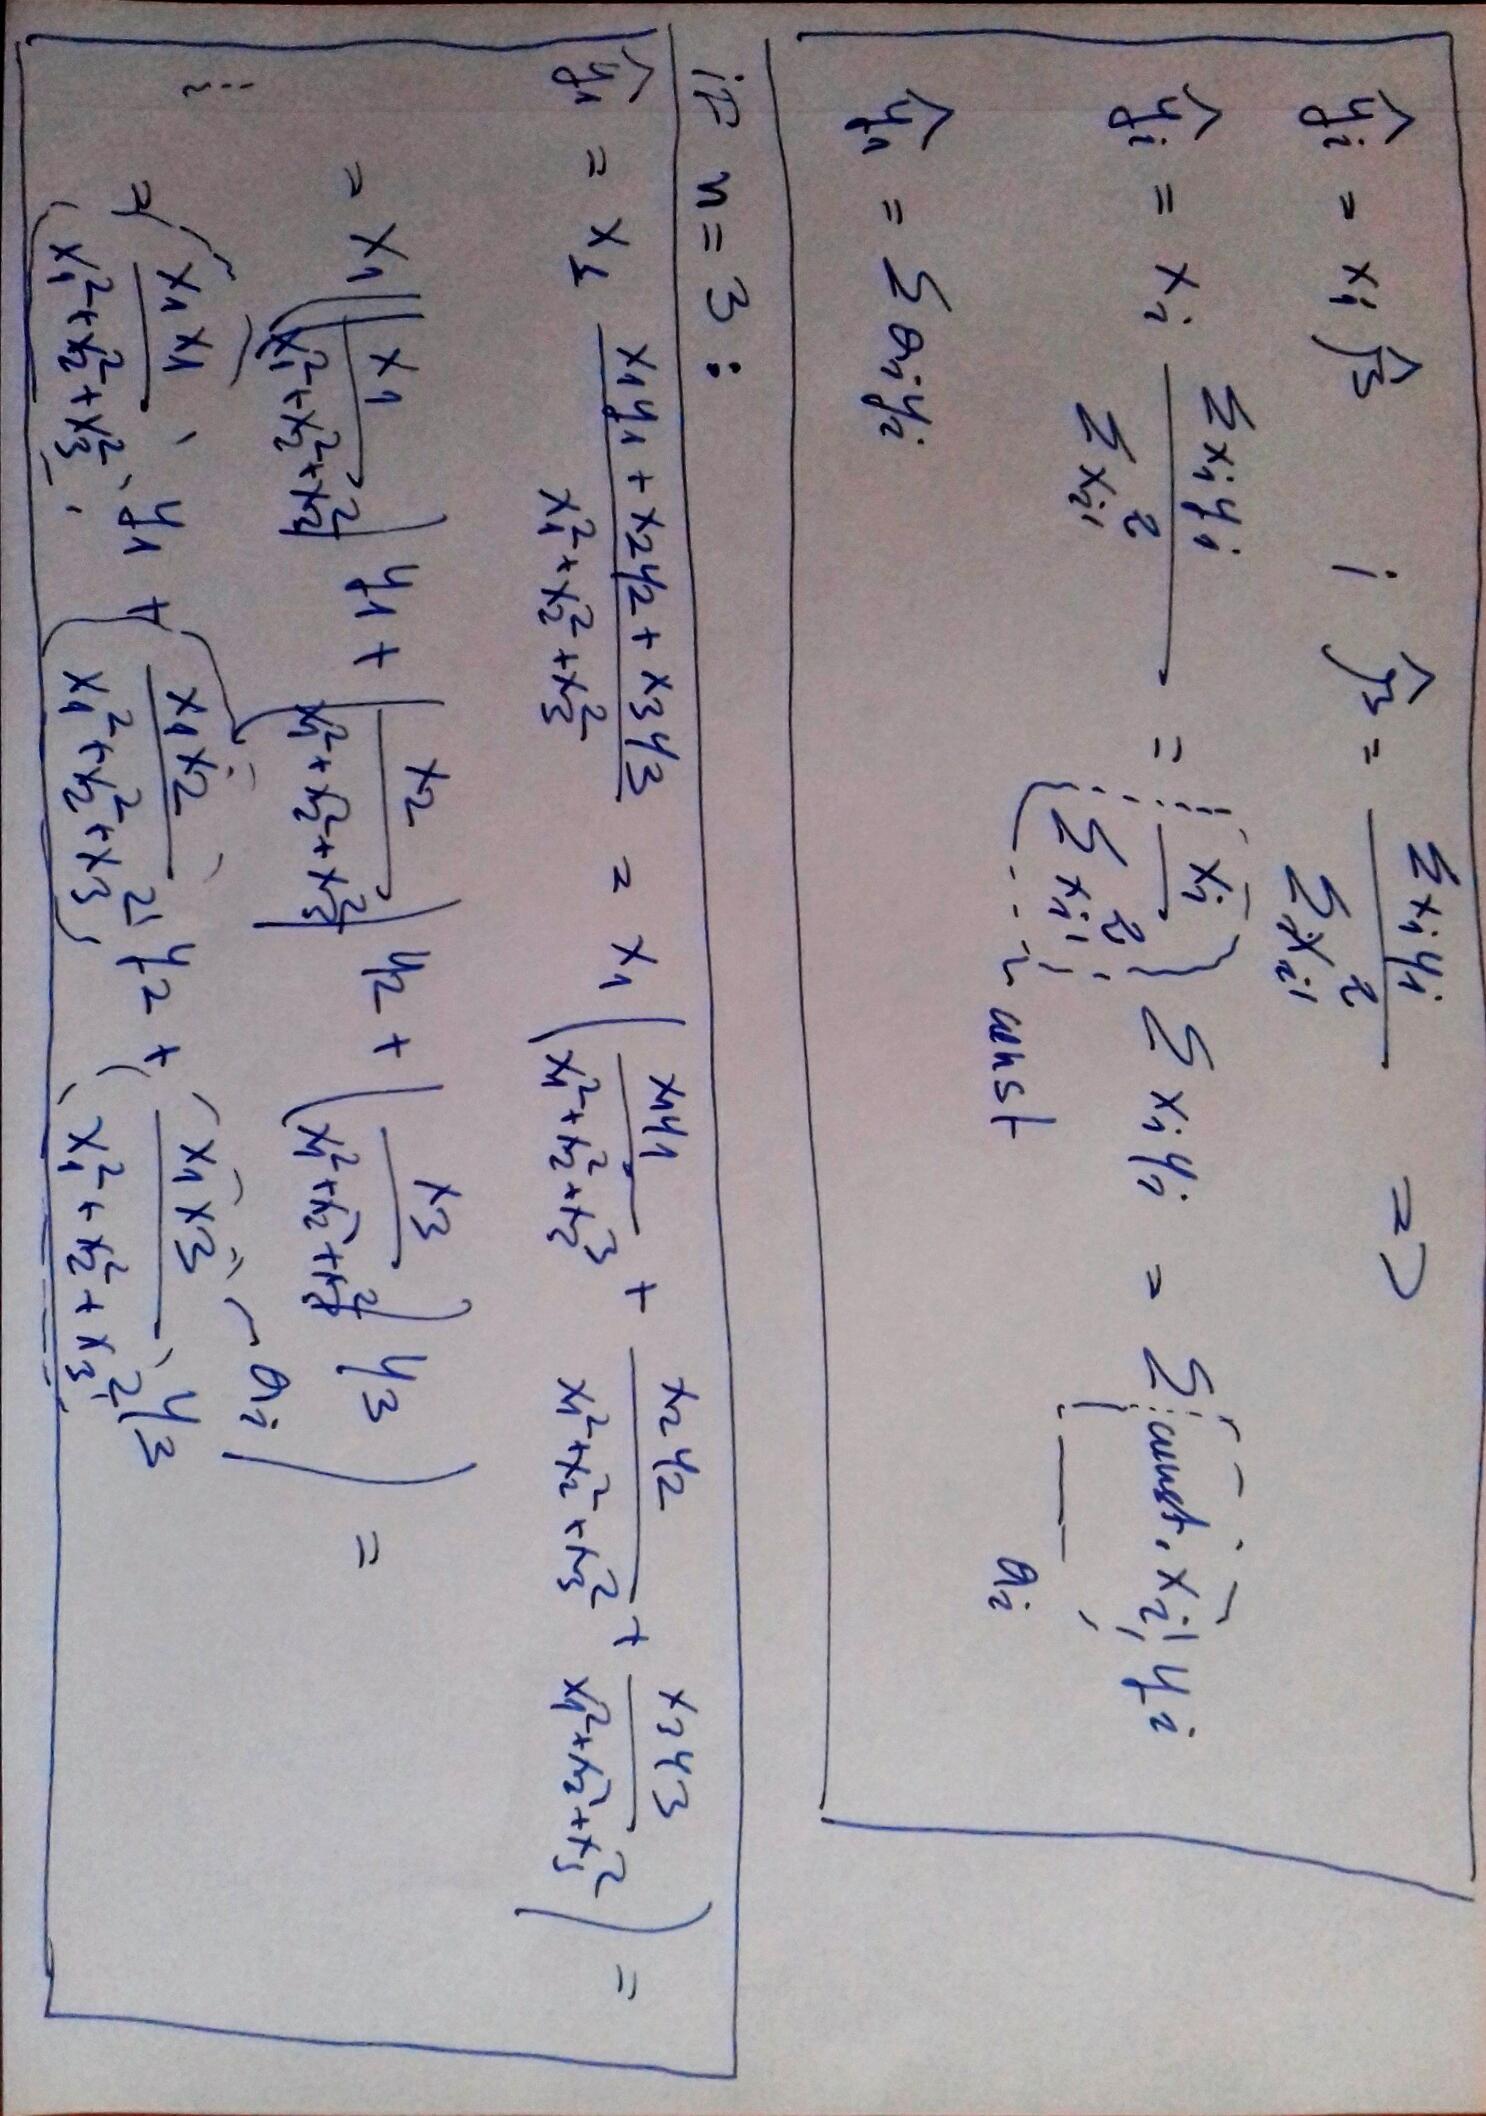 ŷᵢ = xᵢ β̂ ; β̂ = Σxᵢyᵢ / Σxᵢ'² =>
ŷᵢ = xᵢ Σxᵢyᵢ / Σxᵢ'² = xᵢ / Σxᵢ'² Σxᵢyᵢ = Σ const. xᵢ' yᵢ
const aᵢ
ŷ₁ = Σaᵢyᵢ
iF n = 3 :
ŷ₁ = x₁ (x₁y₁ + x₂y₂ + x₃y₃) / (x₁² + x₂² + x₃²) = x₁ ( x₁y₁ / (x₁² + x₂² + x₃³) + x₂y₂ / (x₁² + x₂² + x₃²) + x₃y₃ / (x₁² + x₂² + x₃²) ) =
= x₁ ( ( x₁ / (x₁² + x₂² + x₃²) ) y₁ + ( x₂ / (x₁² + x₂² + x₃²) ) y₂ + ( x₃ / (x₁² + x₂² + x₃²) ) y₃ ) =
aᵢ
= x₁x₁ / (x₁² + x₂² + x₃²) y₁ + x₁x₂ / (x₁² + x₂² + x₃²) y₂ + x₁x₃ / (x₁² + x₂² + x₃²) y₃